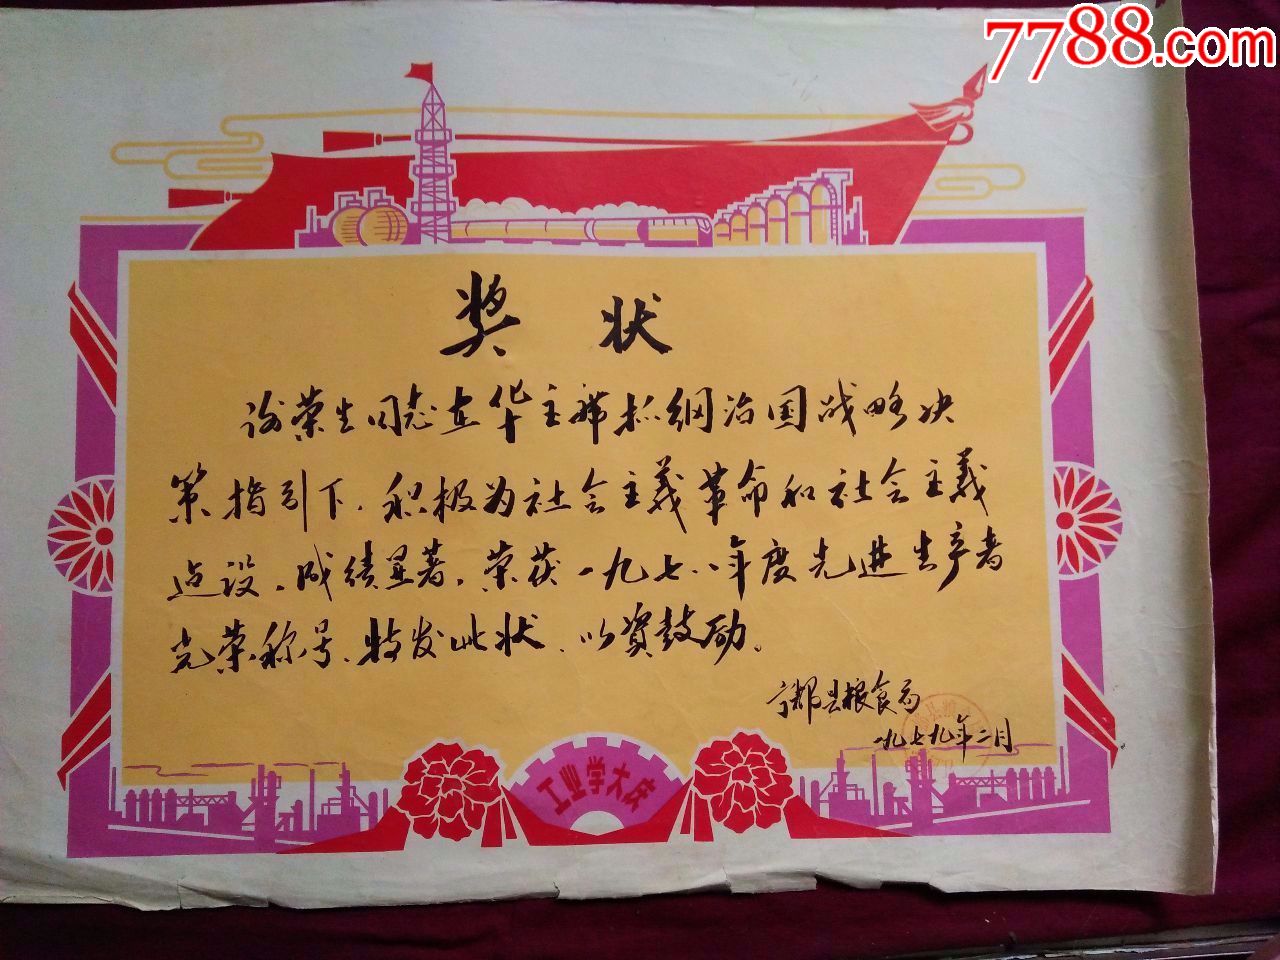 7788.com
奖状
谢荣生同志在华主席抓纲治国战略决
策指引下，积极为社会主义革命和社会主义
建设，成绩显著，荣获一九七八年度先进生产者
光荣称号，特发此状，以资鼓励。
宁都县粮食局
一九七九年二月
工业学大庆